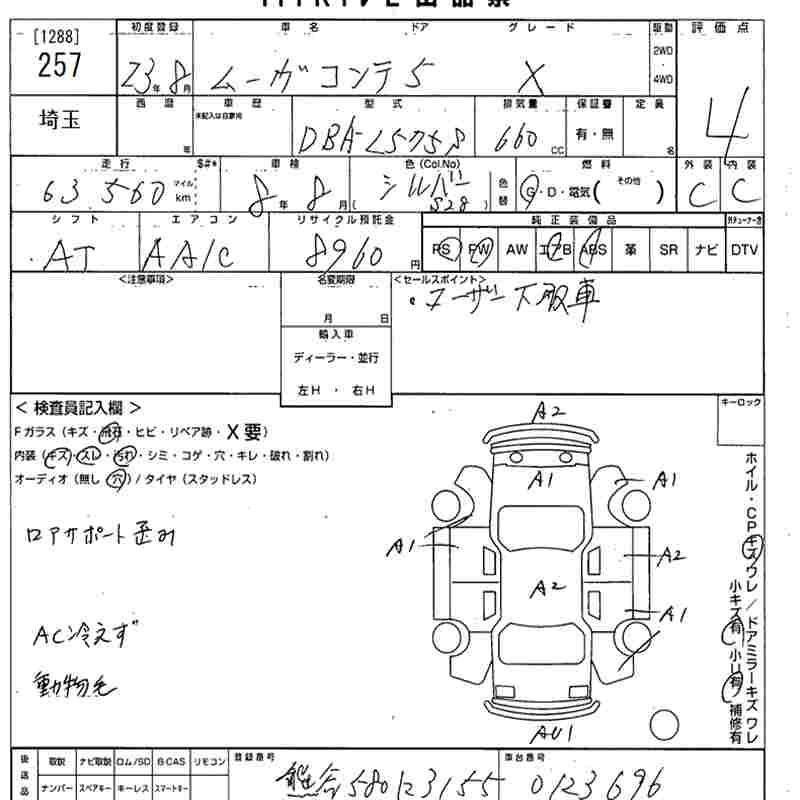 [1288] 初度登録 車名 ドア グレード 駆動 評価点
257 23年8月 ムーヴコンテ 5 X 2WD 4WD 4
埼玉 西暦 年 車歴 未記入は自家用 型式 DBA-L575S 排気量 660 CC 保証書 有・無 定員 名
走行 63,560 マイル km $#* 車検 8年8月 色(Col.No) シルバー S28 色替 燃料 G・D・電気( その他 ) 外装 C 内装 C
シフト AT エアコン AA/C リサイクル預託金 8960円 純正装備品 PS PW AW エアB ABS 革 SR ナビ DTV
<注意事項> 名変期限 月 日 <セールスポイント>
・ユーザー下取車
輸入車
ディーラー・並行
左H ・ 右H
キーロック
< 検査員記入欄 >
Fガラス(キズ・飛石・ヒビ・リペア跡・X要)
内装(キズ・スレ・汚れ・シミ・コゲ・穴・キレ・破れ・割れ)
オーディオ(無し・穴)/タイヤ(スタッドレス)
コアサポート歪み
AC冷えず
動物毛
A2
A1 A1
A1 A2 A2
A1
AU1
ホイル・CPキズワレ/ドアミラーキズワレ
小キズ有 小U有 補修有
後送品 取説 ナビ取説 ロム/SD B-CAS リモコン
ナンバー スペアキー キーレス スマートキー
登録番号 熊谷580 3155
車台番号 0123696